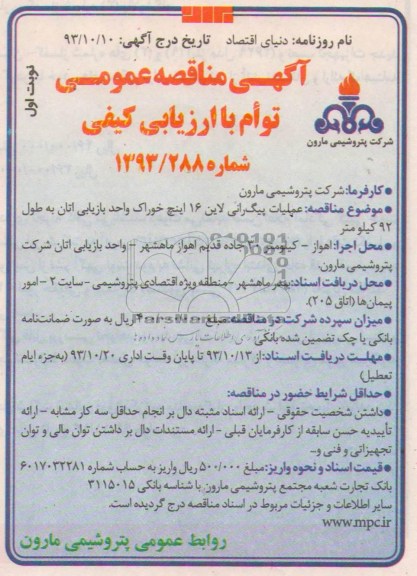 نام روزنامه: دنیای اقتصاد تاریخ درج آگهی: ۹۳/۱۰/۱۰
نوبت اول
آگهی مناقصه عمومی
توأم با ارزیابی کیفی
شماره ۱۳۹۳/۲۸۸
شرکت پتروشیمی مارون
●کارفرما: شرکت پتروشیمی مارون
●موضوع مناقصه: عملیات پیگرانی لاین ۱۶ اینچ خوراک واحد بازیابی اتان به طول
۹۲ کیلو متر
●محل اجرا: اهواز – کیلومتر جاده قدیم اهواز ماهشهر – واحد بازیابی اتان شرکت
پتروشیمی مارون.
●محل دریافت اسناد: بندر ماهشهر –منطقه ویژه اقتصادی پتروشیمی –سایت ۲ – امور
پیمان‌ها (اتاق ۲۰۵).
●میزان سپرده شرکت در مناقصه: مبلغ ریال به صورت ضمانتنامه
بانکی یا چک تضمین شده بانکی
●مهلت دریافت اسناد: از ۹۳/۱۰/۱۳ تا پایان وقت اداری ۹۳/۱۰/۲۰ (به‌جزء ایام
تعطیل)
●حداقل شرایط حضور در مناقصه:
●داشتن شخصیت حقوقی – ارائه اسناد مشبته دال بر انجام حداقل سه کار مشابه – ارائه
تأییدیه حسن سابقه از کارفرمایان قبلی – ارائه مستندات دال بر داشتن توان مالی و توان
تجهیزاتی و فنی و...
●قیمت اسناد و نحوه واریز: مبلغ ۵۰۰/۰۰۰ ریال واریز به حساب شماره ۶۰۱۷۰۳۲۲۸۱
بانک تجارت شعبه مجتمع پتروشیمی مارون با شناسه بانکی ۳۱۱۵۰۱۵
سایر اطلاعات و جزئیات مربوط در اسناد مناقصه درج گردیده است.
www.mpc.ir
روابط عمومی پتروشیمی مارون